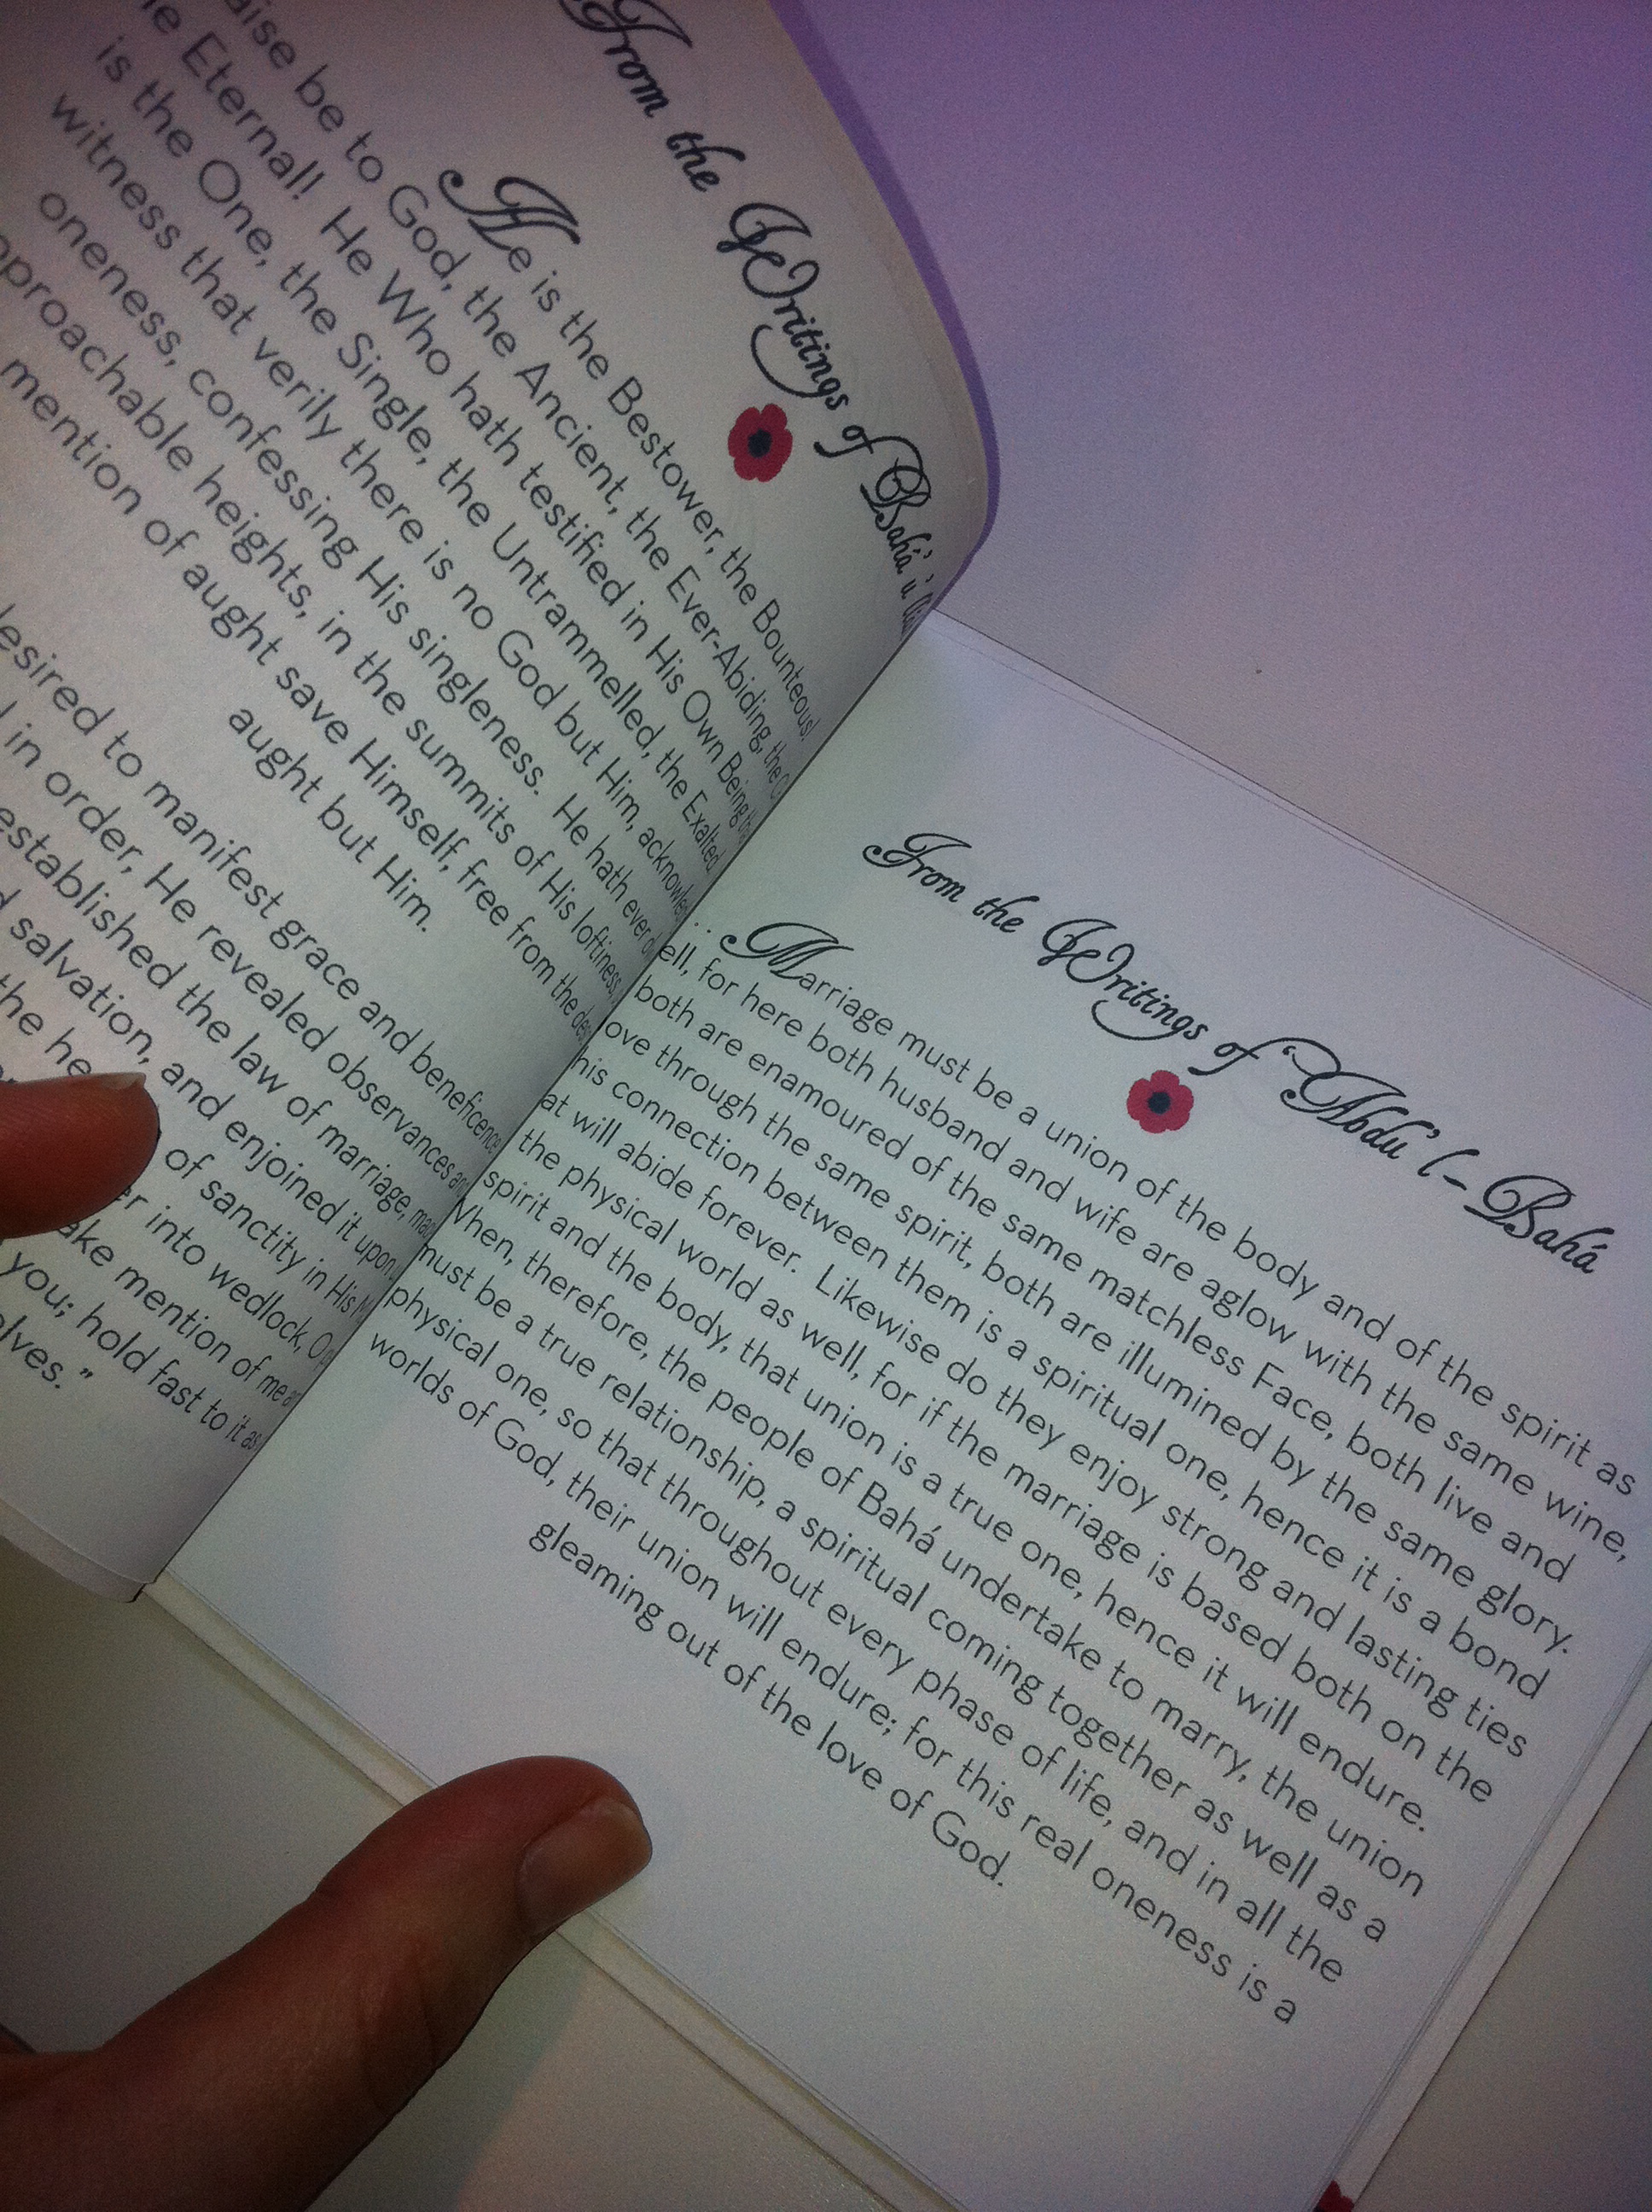 From the Writings of Bahá'u'
He is the Bestower, the Bounteous!
aise be to God, the Ancient, the Ever-Abiding, the
e Eternal! He Who hath testified in His Own Being
is the One, the Single, the Untrammelled, the Exalted
witness that verily there is no God but Him,
oneness, confessing His singleness. He hath ever
proachable heights, in the summits of His loftiness,
mention of aught save Himself, free from the
aught but Him.
desired to manifest grace and beneficence
in order, He revealed observances
established the law of marriage,
salvation, and enjoined it upon
the he of sanctity in His
er into wedlock, O
ake mention of me
you; hold fast to it as
lves."
From the Writings of 'Abdu'l-Bahá
Marriage must be a union of the body and of the spirit as
ell, for here both husband and wife are aglow with the same wine,
both are enamoured of the same matchless Face, both live and
ove through the same spirit, both are illumined by the same glory.
his connection between them is a spiritual one, hence it is a bond
at will abide forever. Likewise do they enjoy strong and lasting ties
the physical world as well, for if the marriage is based both on the
spirit and the body, that union is a true one, hence it will endure.
When, therefore, the people of Bahá undertake to marry, the union
must be a true relationship, a spiritual coming together as well as a
physical one, so that throughout every phase of life, and in all the
worlds of God, their union will endure; for this real oneness is a
gleaming out of the love of God.